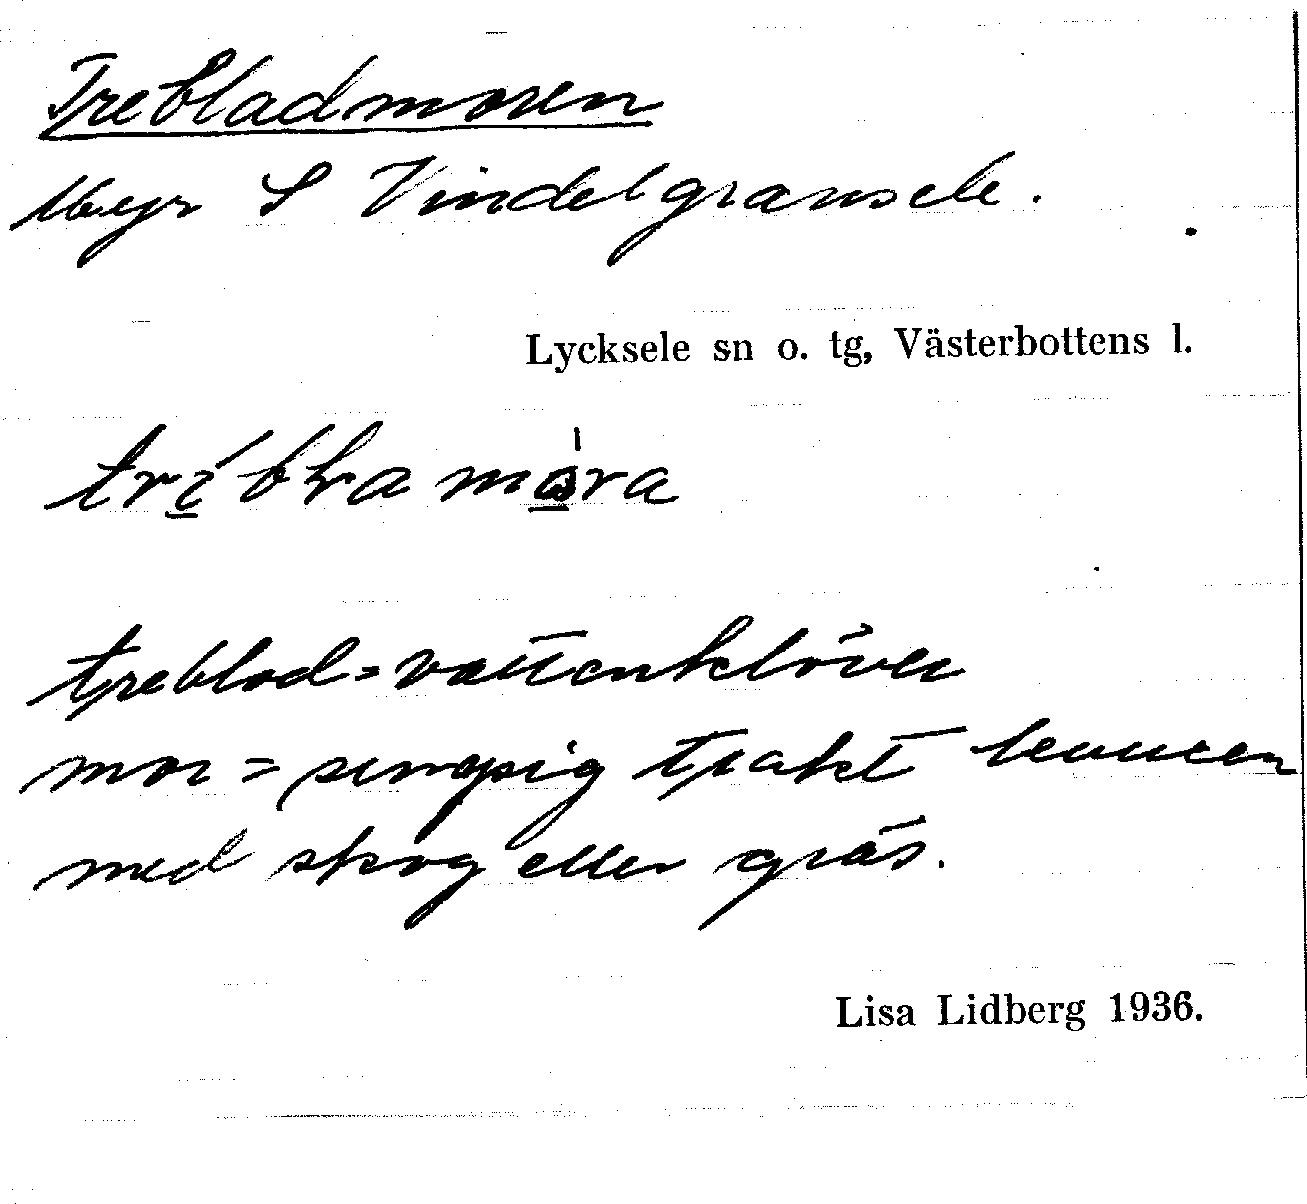 Trebladmoren
Myr S Vindelgransele.
Lycksele sn o. tg, Västerbottens l.
treblad = vattenklöver
mor = sumpig trakt bevuxen
med skog eller gräs.
Lisa Lidberg 1936.